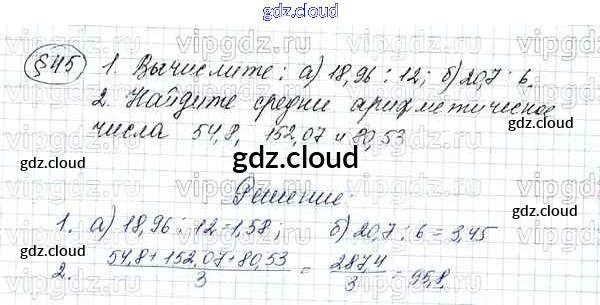 gdz.cloud
§45 1. Вычислите: а) 18,96 : 12; б) 20,7 : 6.
2. Найдите средние арифметическое
числа 54,8, 152,07 и 80,53
gdz.cloud
gdz.cloud
gdz.cloud
Решение:
1. а) 18,96 : 12 = 1,58; б) 20,7 : 6 = 3,45
2. 54,8+152,07+80,53 / 3 = 287,4 / 3 = 95,8.
gdz.cloud
gdz.cloud
gdz.cloud